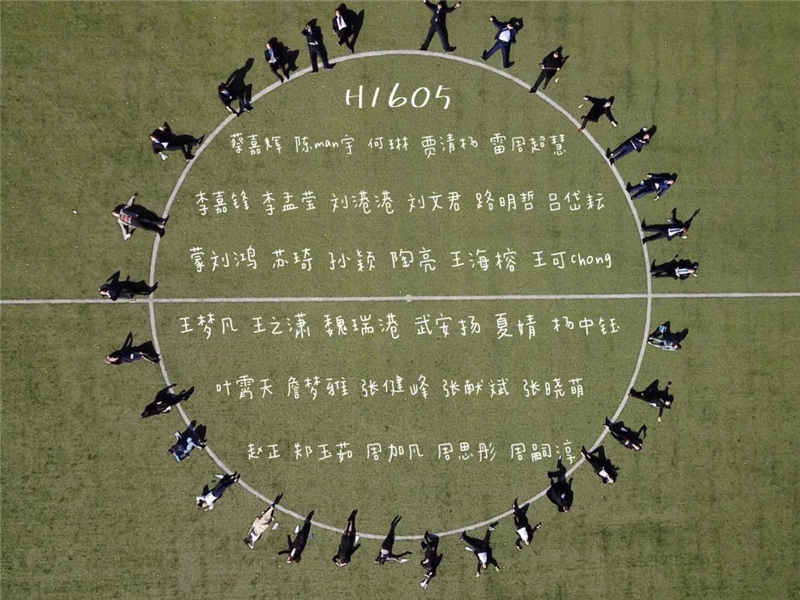 H1605
蔡嘉辉 陈man宇 何琳 贾清杨 雷周超慧
李嘉锋 李孟莹 刘港港 刘文君 路明哲 吕岱耘
蒙刘鸿 苏琦 孙颖 陶亮 王海榕 王可chong
王梦凡 王之潇 魏瑞港 武安扬 夏婧 杨中钰
叶霄天 詹梦雅 张健峰 张献斌 张晓萌
赵正 郑玉茹 周加凡 周思彤 周嗣淳